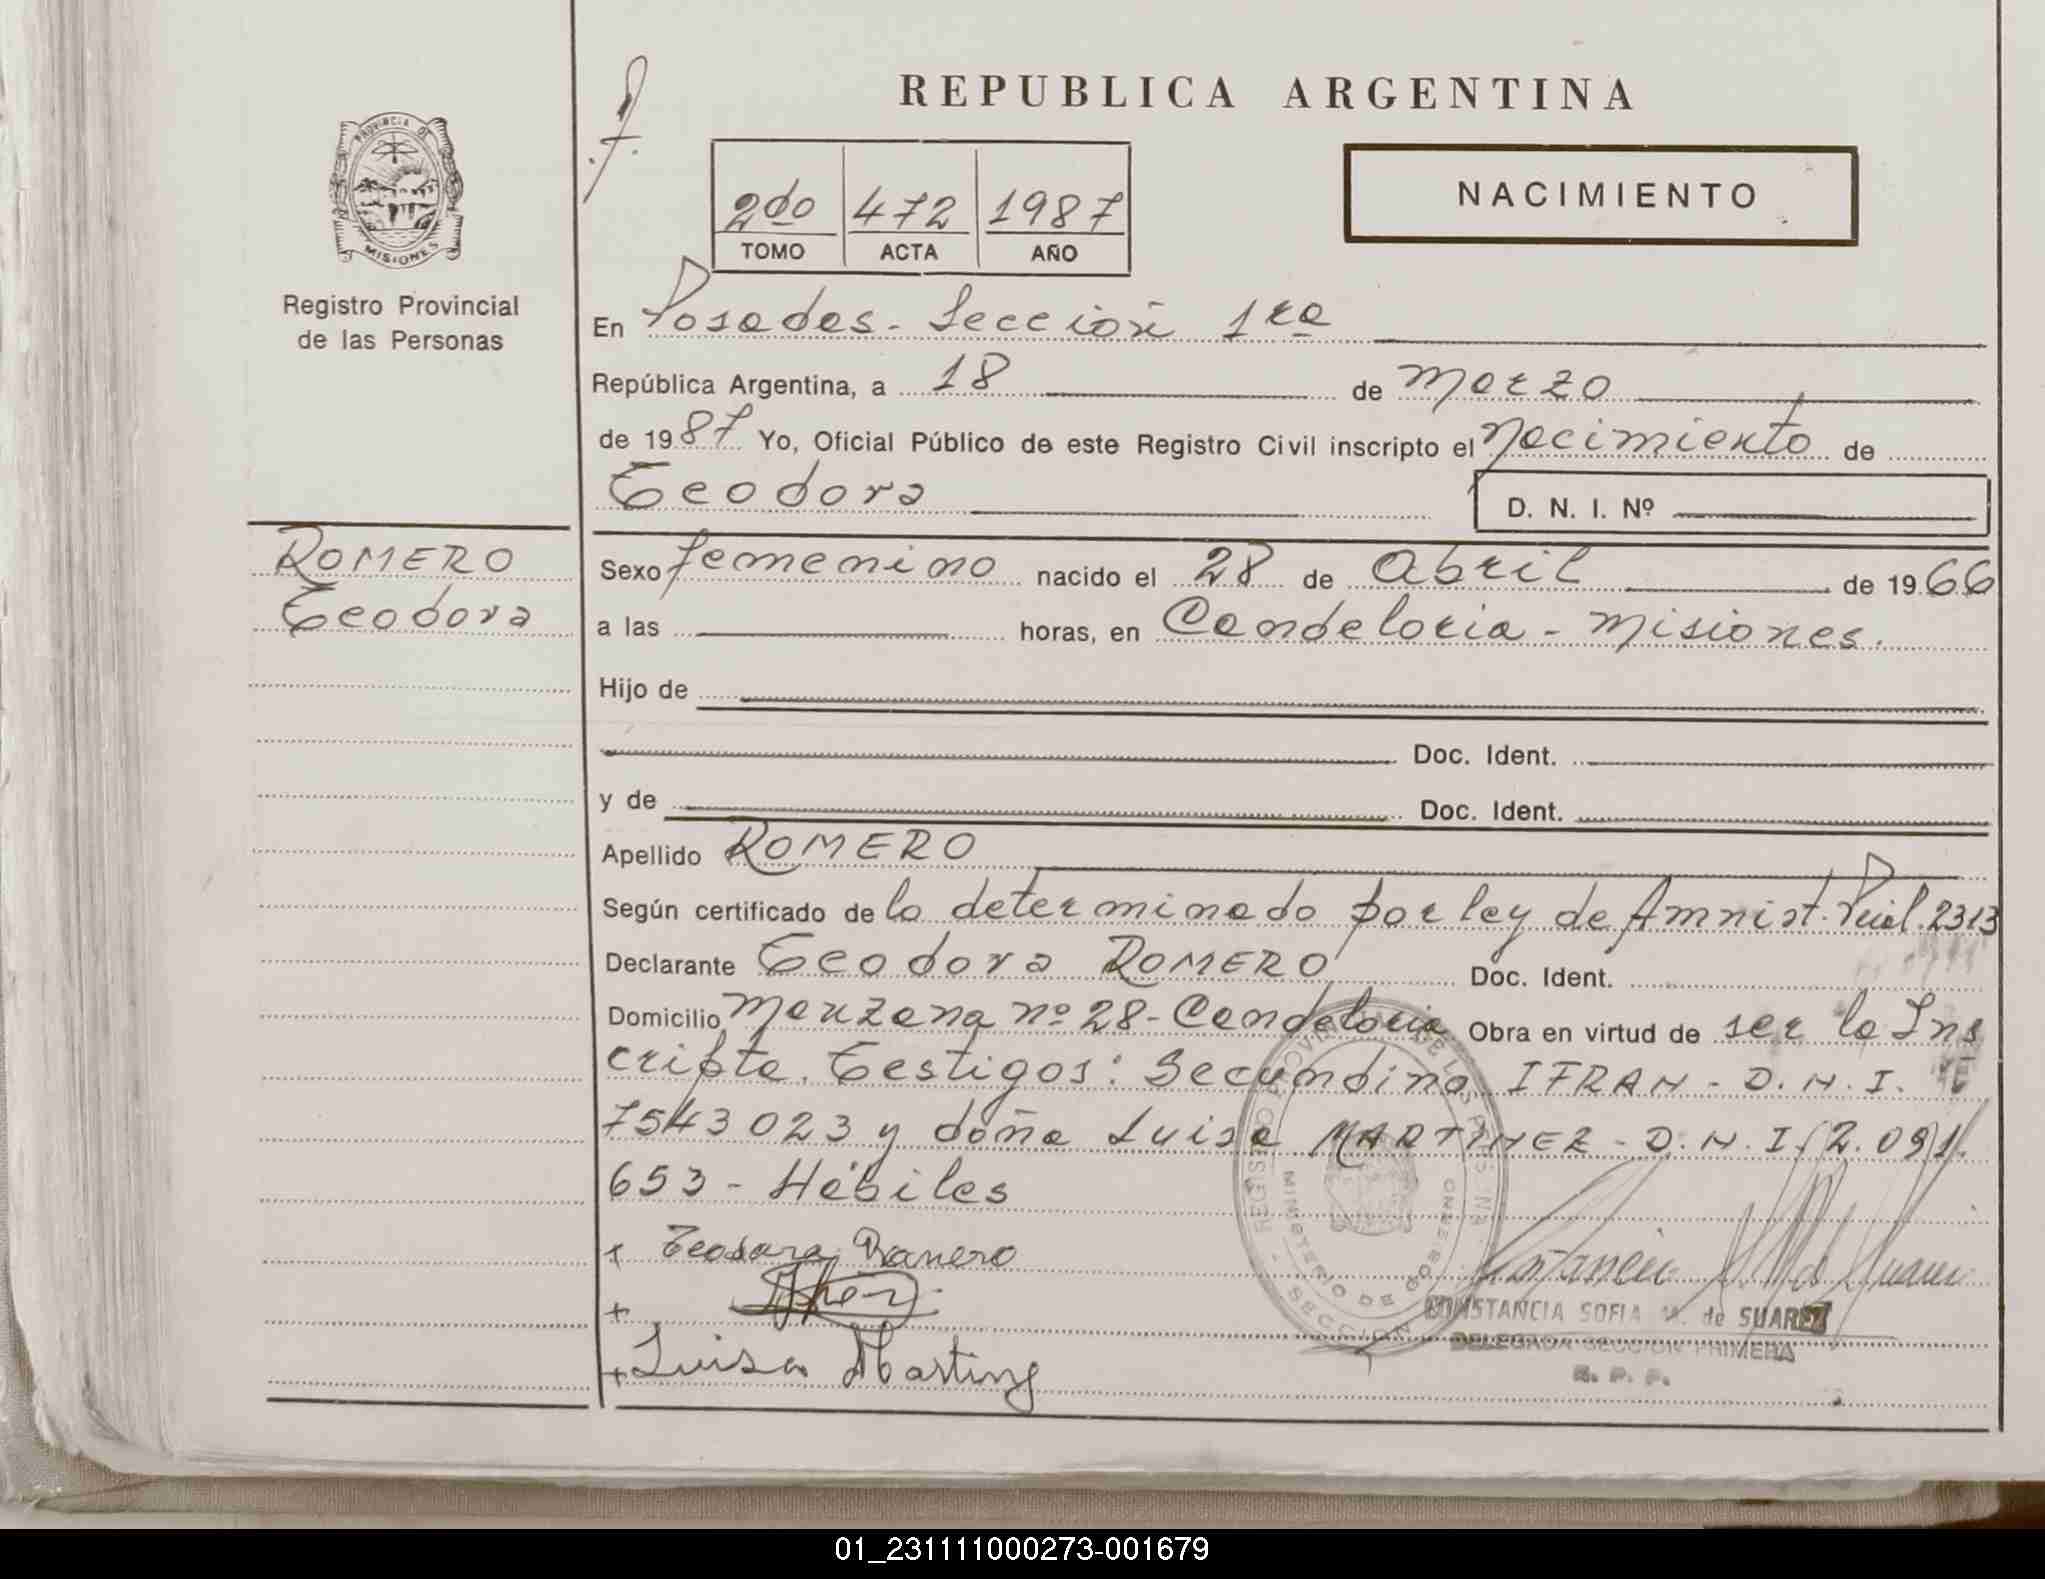 REPUBLICA ARGENTINA
PROVINCIA DE
MISIONES
Registro Provincial
de las Personas
2do 472 1987
TOMO ACTA AÑO
NACIMIENTO
En Posadas - Sección 1ra
República Argentina, a 18 de Marzo
de 1987 Yo, Oficial Público de este Registro Civil inscripto el Nacimiento de
Teodora
D. N. I. Nº
ROMERO
Teodora
Sexo femenino nacido el 28 de Abril de 1966
a las horas, en Candelaria - Misiones.
Hijo de
Doc. Ident.
y de Doc. Ident.
Apellido ROMERO
Según certificado de lo determinado por ley de Amnist. Pcial. 2313
Declarante Teodora ROMERO Doc. Ident.
Domicilio Manzana nº 28 - Candelaria Obra en virtud de ser la Ins
cripta. Testigos: Secundino IFRAN - D.N.I.
7543023 y doña Luisa MARTINEZ - D.N.I. 2.091.
653 - Hábiles
+ Teodora Romero
+
+ Luisa Martinez
CONSTANCIA SOFIA M. de SUAREZ
DELEGADA SECCION PRIMERA
R. P. P.
01_231111000273-001679